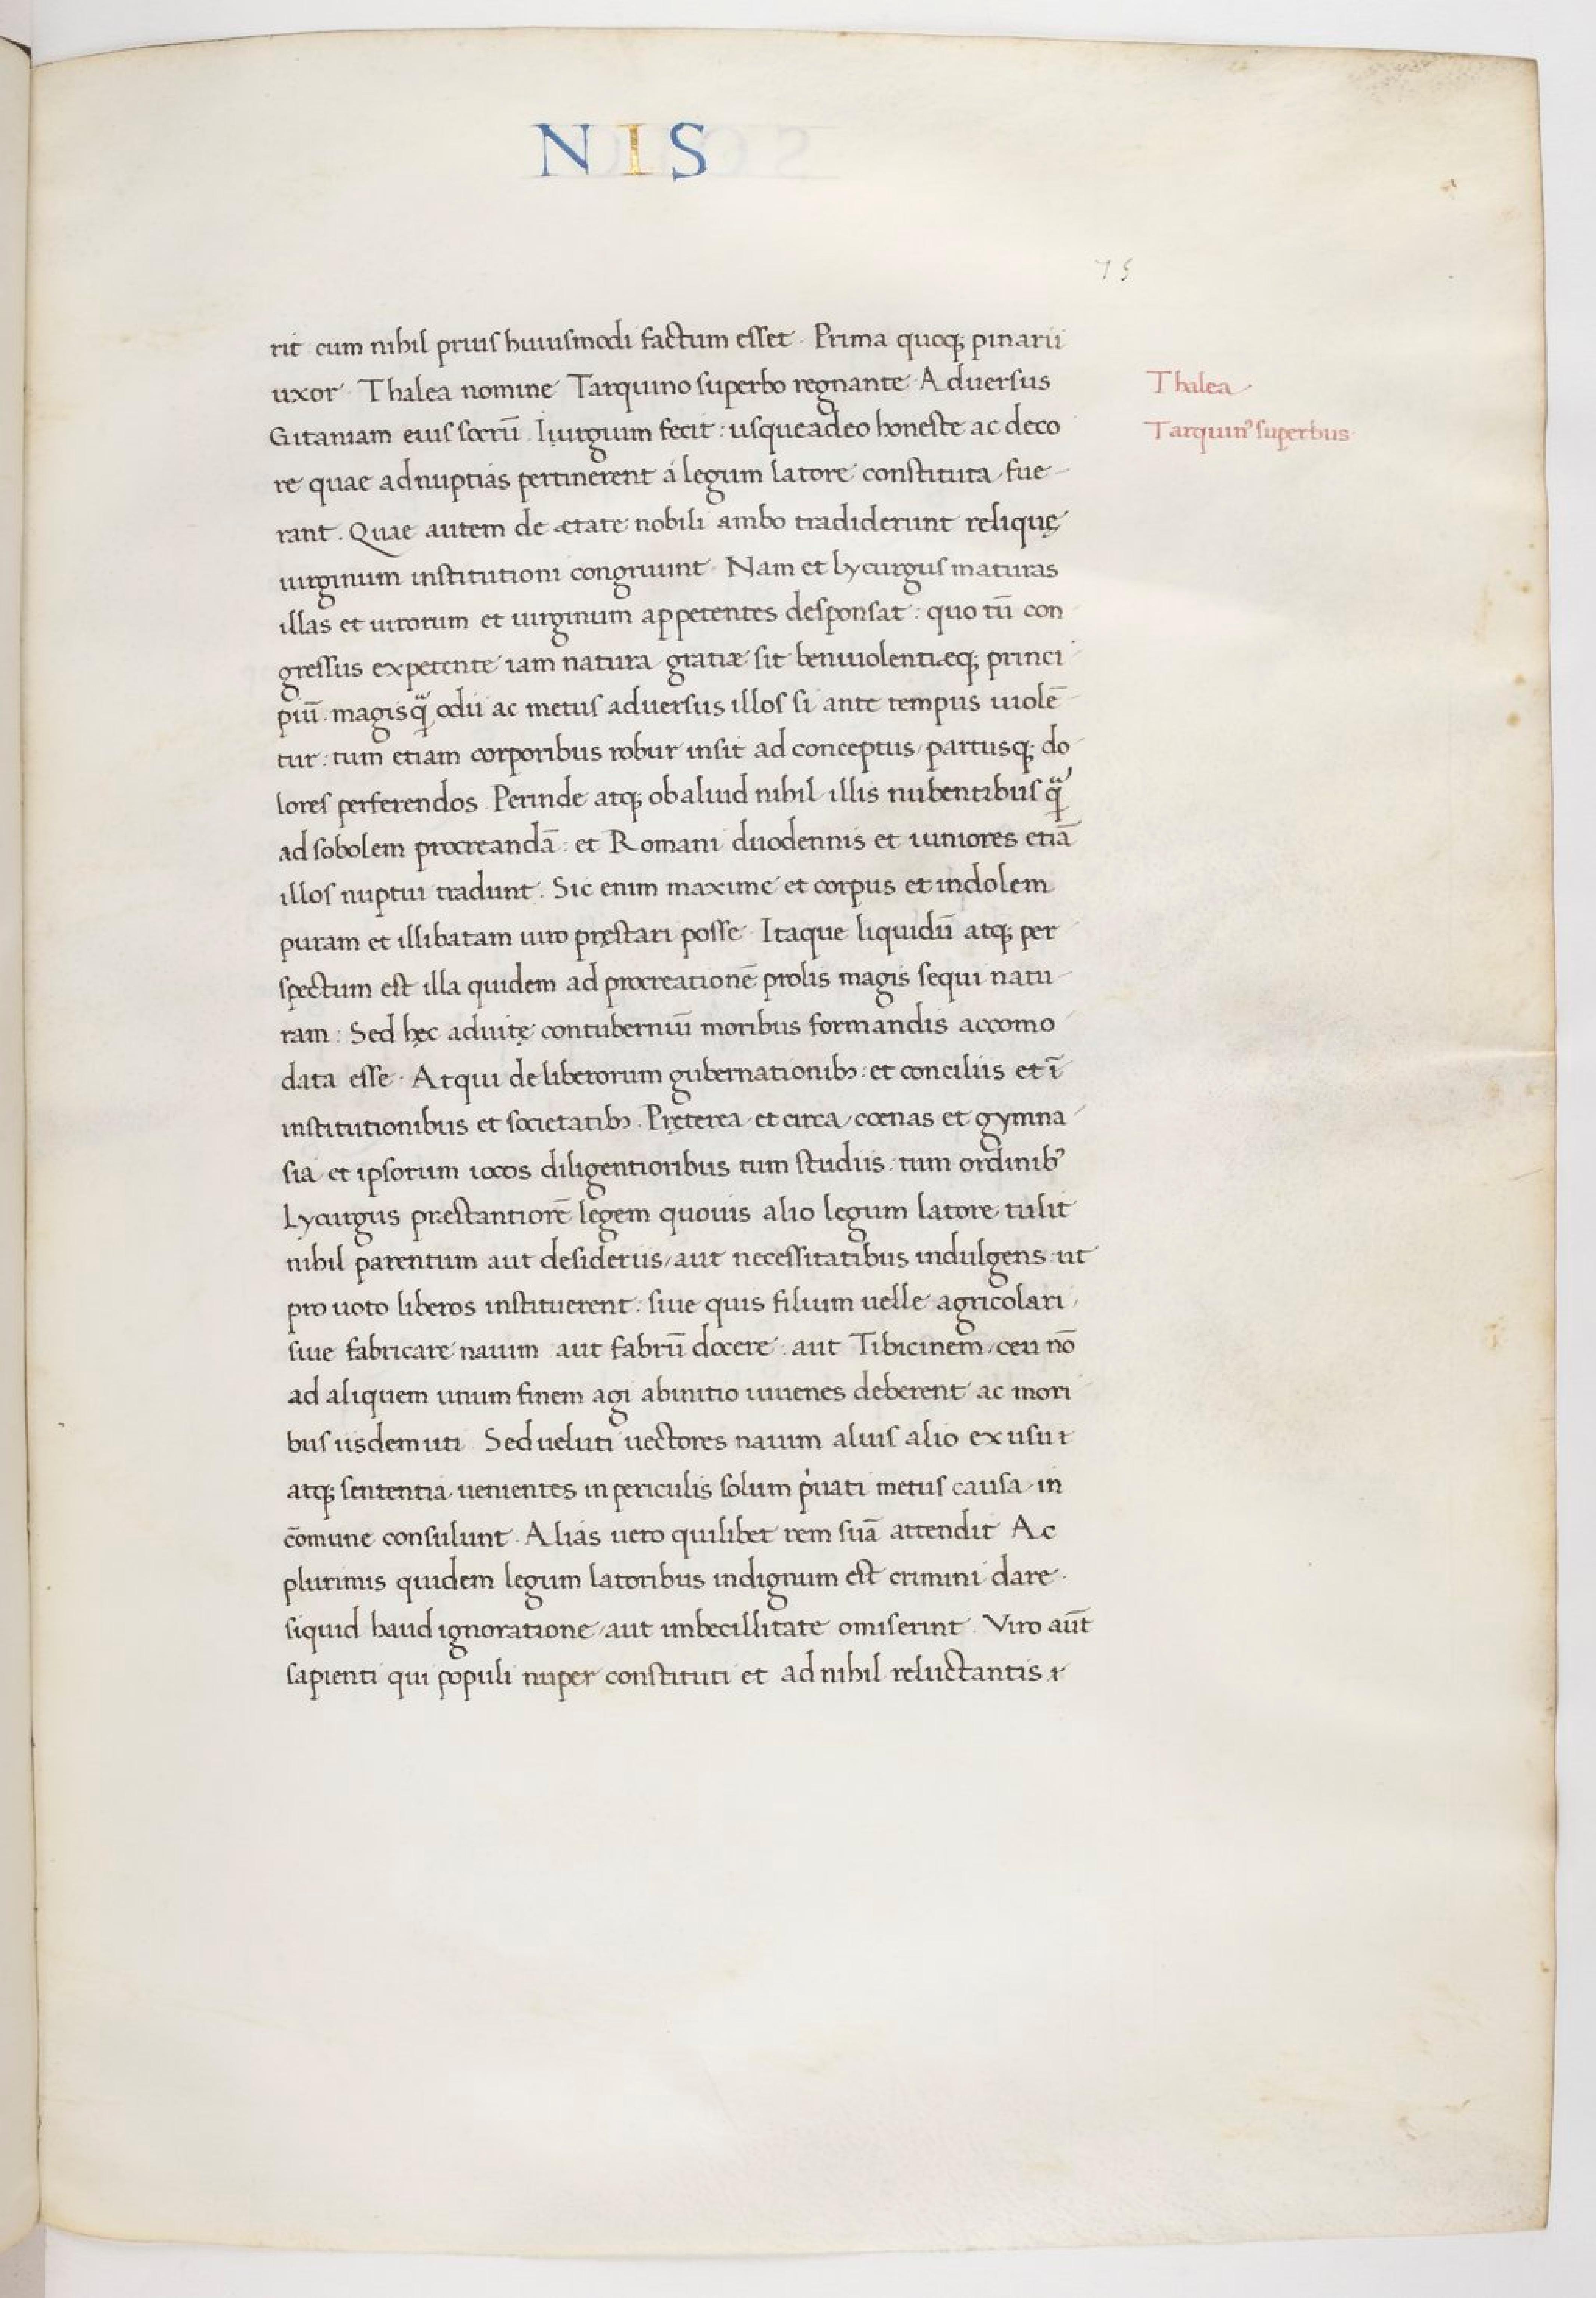 N I S
75
rit cum nihil prius huiusmodi factum esset. Prima quoq; pinarii
uxor. Thalea nomine Tarquino superbo regnante. Aduersus
Thalea
Gitaniam eius socrū. Iiurgium fecit: usqueadeo honeste ac deco
Tarquin⁹ superbus
re quae ad nuptias pertinerent á legum latore constituta fue-
rant. Quae autem de ætate nobili ambo tradiderunt reliquę
uirginum institutioni congruunt. Nam et Lycurgus maturas
illas et uirorum et uirginum appetentes desponsat: quo tū con
gressus expetente iam natura gratiæ sit beniuolentiæq; princi
piū. magisq̃ odii ac metus aduersus illos si ante tempus uiolē
tur: tum etiam corporibus robur insit ad conceptus, partusq; do
lores perferendos. Perinde atq; ob aliud nihil illis nubentibus q̃
ad sobolem procreandā: et Romani duodennis et iuniores etiā
illos nuptui tradunt. Sic enim maxime et corpus et indolem
puram et illibatam uiro pręstari posse. Itaque liquidū atq; per
spectum est illa quidem ad procreationē prolis magis sequi natu-
ram: Sed hęc ad uitę contuberniū moribus formandis accomo
data esse. Atqui de liberorum gubernationibꝫ: et conciliis et ī
institutionibus et societatibꝫ. Pręterea et circa cœnas et gymna
sia et ipsorum iocos diligentioribus tum studiis: tum ordinib⁹
Lycurgus præstantiorē legem quouis alio legum latore tulit
nihil parentum aut desideriis, aut necessitatibus indulgens ut
pro uoto liberos instituerent: siue quis filium uelle agricolari,
siue fabricare nauim aut fabrū docere. aut Tibicinem, ceu nō
ad aliquem unum finem agi ab initio iuuenes deberent ac mori
bus iisdem uti. Sed ueluti uectores nauim aliuis alio ex usu ⁊
atq; sententia uenientes in periculis solum p̓uati metus causa in
cōmune consulunt. Alias uero quilibet rem suā attendit Ac
plurimis quidem legum latoribus indignum est crimini dare.
siquid haud ignoratione, aut imbecillitate omiserint. Viro aūt
sapienti qui populi nuper constituti et ad nihil reluctantis ⁊